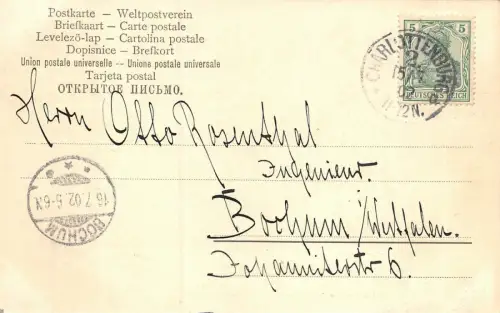 Postkarte — Weltpostverein
Briefkaart — Carte postale
Levelező-lap — Cartolina postale
Dopisnice — Brefkort
Union postale universelle -- Unione postale universale
Tarjeta postal
ОТКРЫТОЕ ПИСЬМО.
5 5
DEUTSCHES REICH
CHARLOTTENBURG
11-12N.
Herrn Otto Rosenthal
Ingenieur.
Bochum i/Westfalen.
Johanniterstr 6.
16.7.02.5-6N
BOCHUM